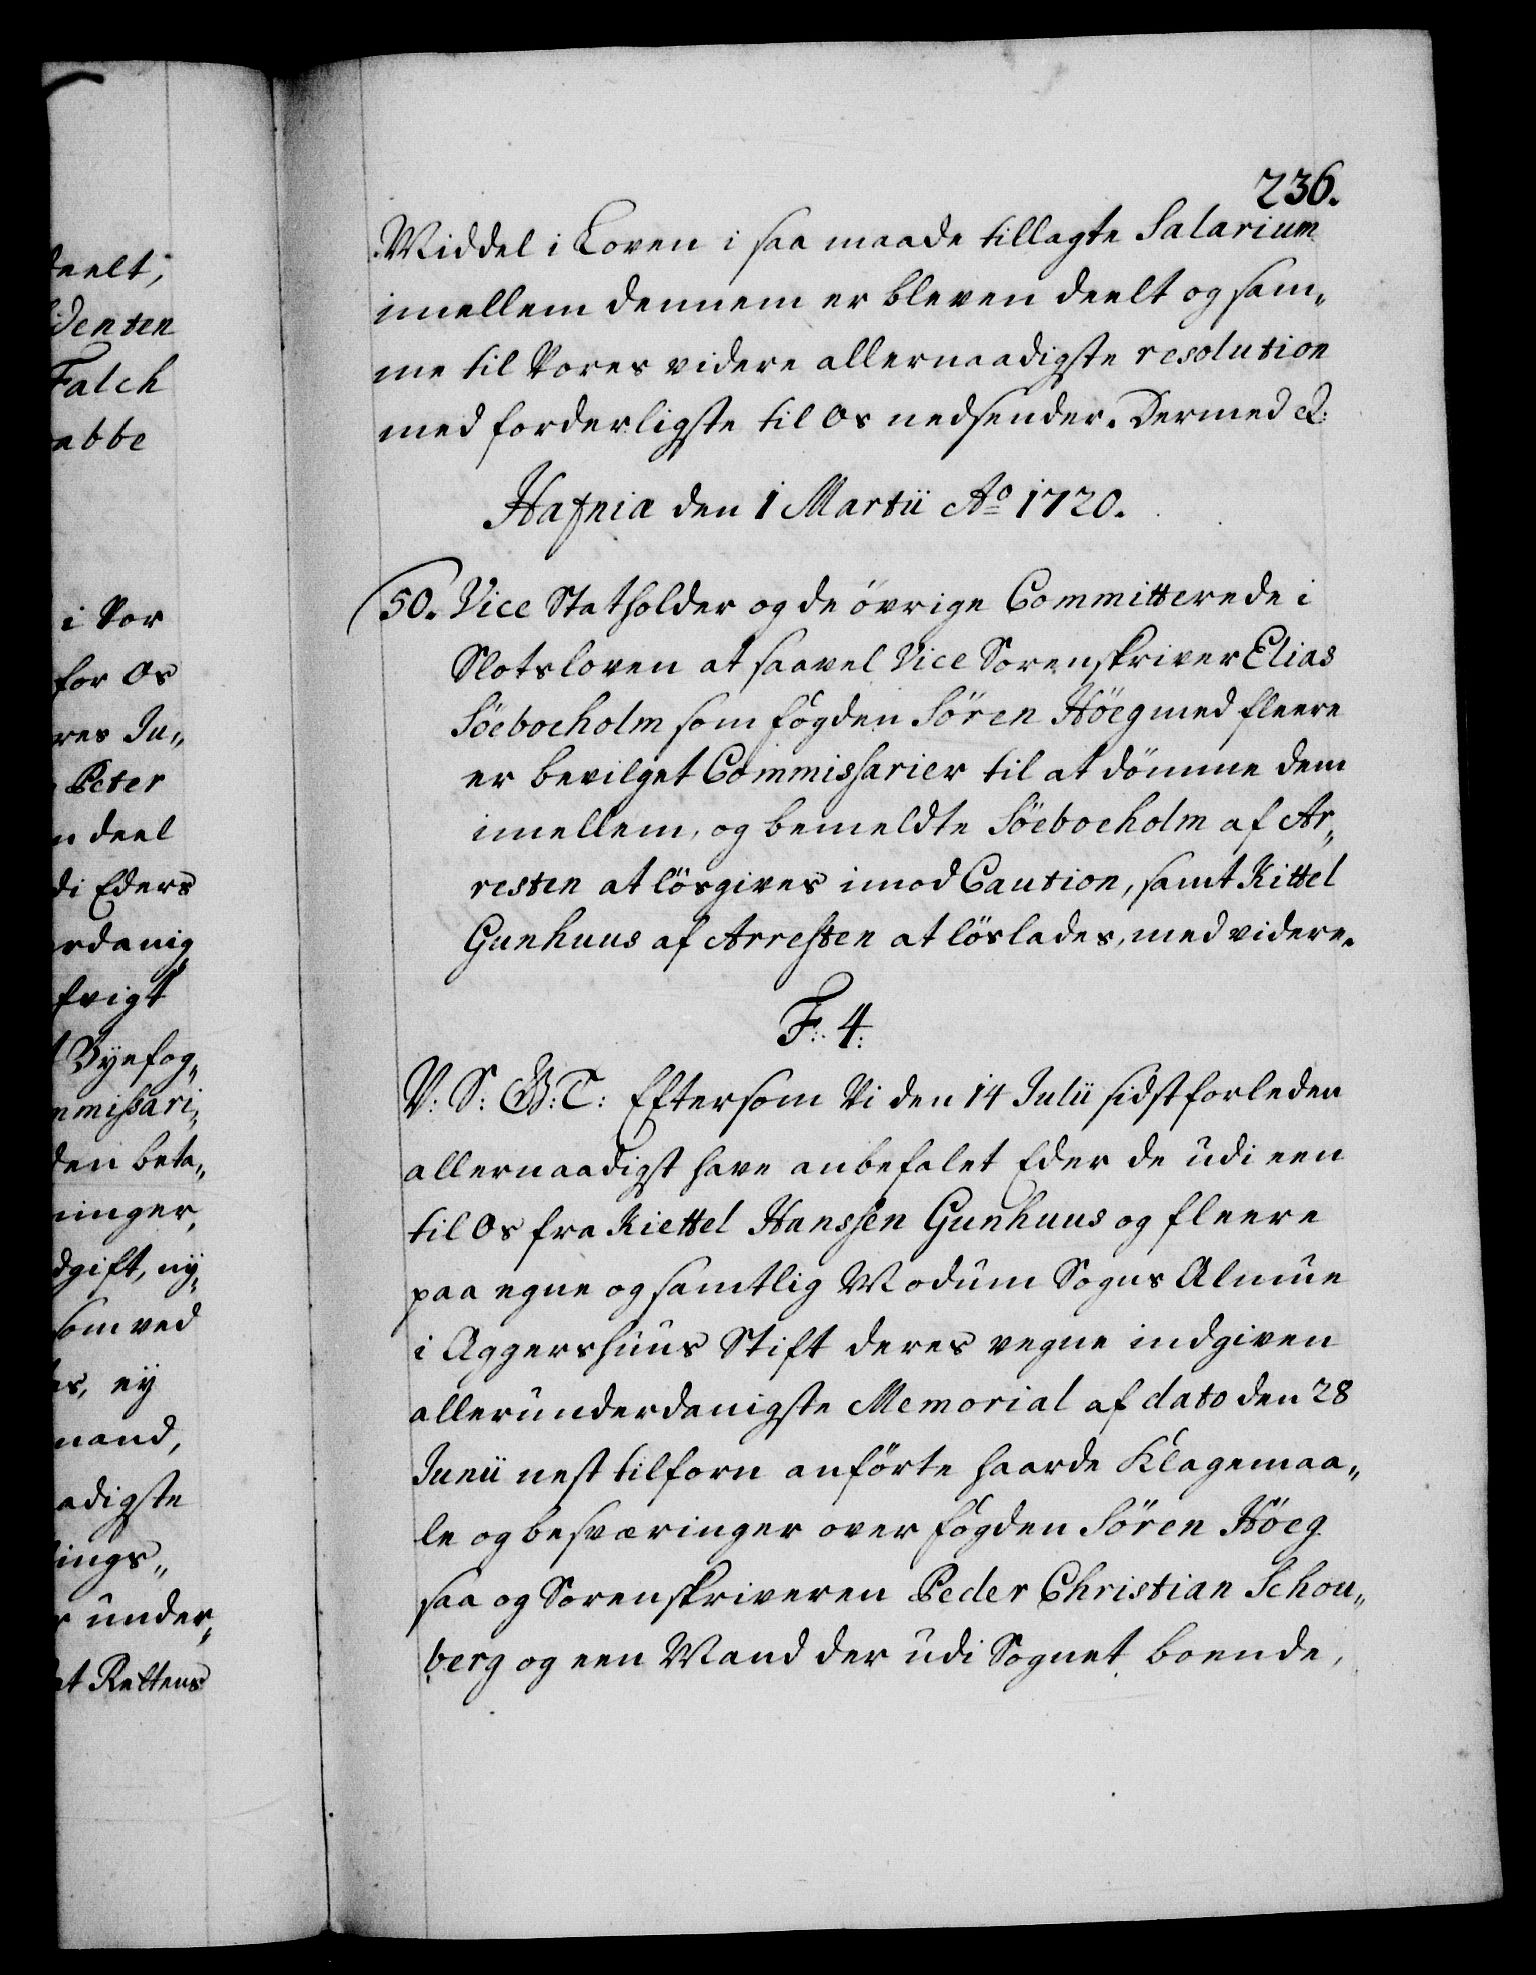 deelt,
denten
Falch
abbe
i Vor
for Os
res In„
Peter
n deel
di Eders
rdanig
frigt
Byefog„
mmissari„
den beta„
ninger,
dgift, ny„
som ved
es, ey
mand,
adigste
ings„
r under„
at Rettens
236.
Middel i Loven i saa maade tillagte Salarium
imellem dennem er bleven deelt og sam„
me til Vores videre allernaadigste resolution
med forderligste til Os nedsender. Dermed &:
Hafnia den 1 Martii Ao 1720.
50. Vice Statholder og de övrige Committerede i
Slotsloven at saavel Vice Sorenskriver Elias
Söebocholm som fogden Sören Höeg med fleere
er bevilget Commissarier til at dömme dem
imellem, og bemeldte Söebocholm af Ar„
resten at lösgives imod Caution, samt Kittel
Gunhuus af Arresten at löslades, med videre.
F: 4:
V: S: G: T: Eftersom Vi den 14 Julii sidstforleden
allernaadigst have anbefalet Eder de udi een
til Os fra Kiettel Hanssen Gunhuus og fleere
paa egne og samtlig Modum Sogns Almue
i Aggershuus Stift deres vegne indgiven
allerunderdanigste Memorial af dato den 28
Junii nest tilforn anförte haarde Klagemaa„
le og besværinger over fogden Sören Höeg
saa og Sorenskriveren Peder Christian Schou„
berg og een Mand der udi Sognet boende,